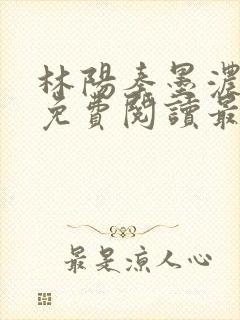 林陽秦墨濃
免費閱讀最
最是涼人心